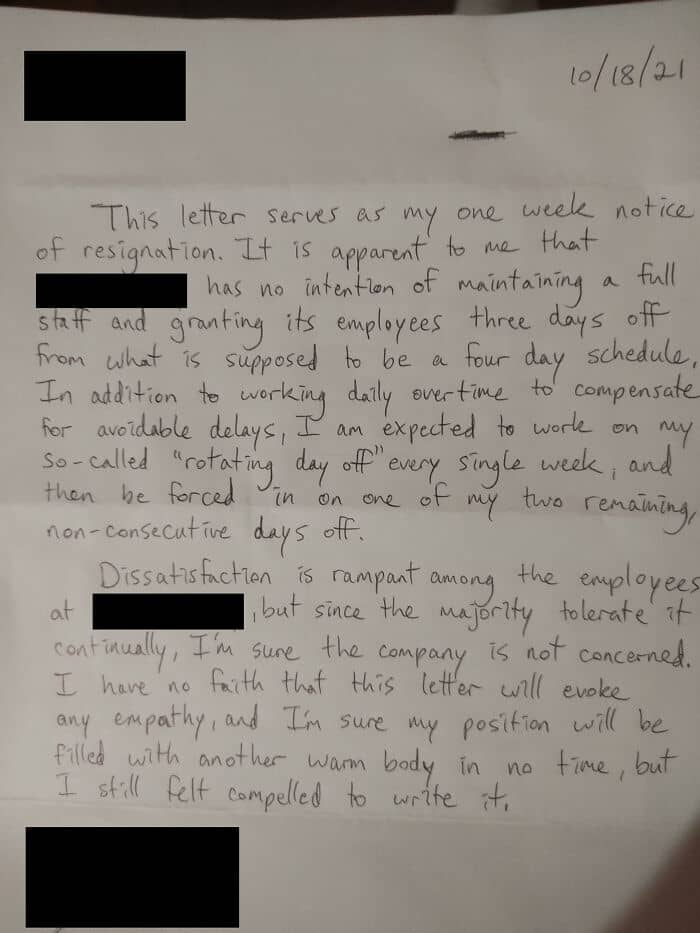 10/18/21
This letter serves as my one week notice
of resignation. It is apparent to me that
has no intention of maintaining a full
staff and granting its employees three days off
from what is supposed to be a four day schedule.
In addition to working daily overtime to compensate
for avoidable delays, I am expected to work on my
so-called "rotating day off" every single week, and
then be forced in on one of my two remaining,
non-consecutive days off.
Dissatisfaction is rampant among the employees
at , but since the majority tolerate it
continually, I'm sure the company is not concerned.
I have no faith that this letter will evoke
any empathy, and I'm sure my position will be
filled with another warm body in no time, but
I still felt compelled to write it.